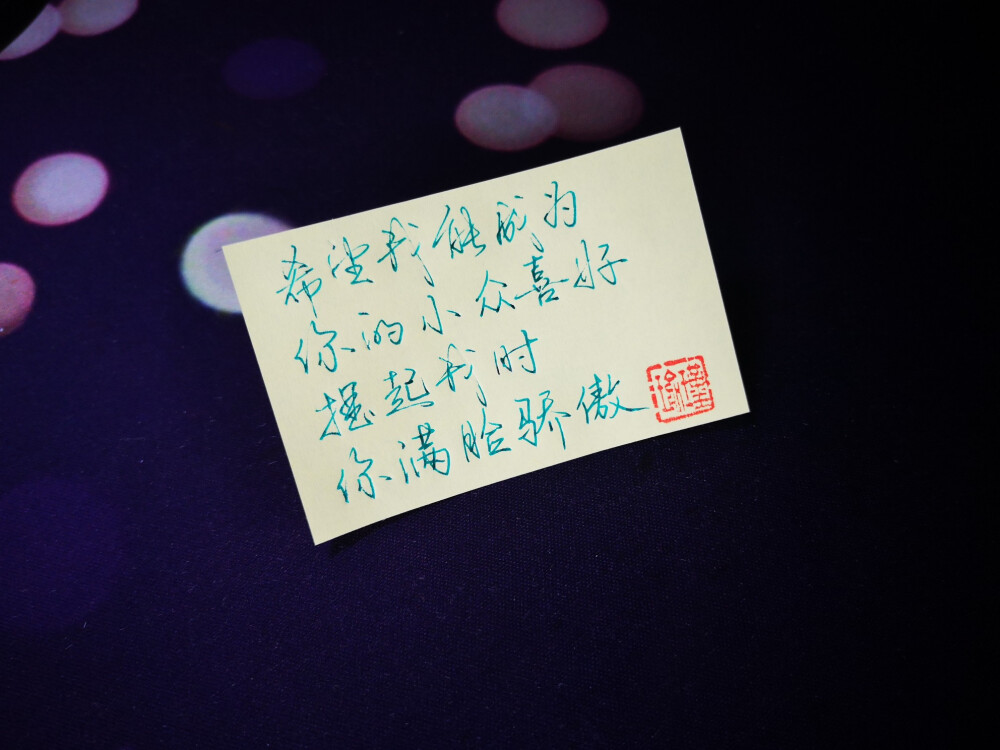 希望我能成为
你的小众喜好
提起我时
你满脸骄傲